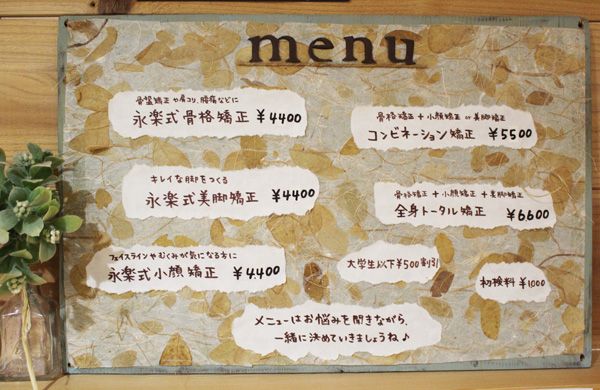 menu
骨盤矯正や肩コリ、腰痛などに
永楽式骨格矯正 ¥4400
キレイな脚をつくる
永楽式美脚矯正 ¥4400
フェイスラインやむくみが気になる方に
永楽式小顔矯正 ¥4.400
骨格矯正 + 小顔矯正 or 美脚矯正
コンビネーション矯正 ¥5500
骨格矯正 + 小顔矯正 + 美脚矯正
全身トータル矯正 ¥6600
大学生以下¥500割引
初検料 ¥1000
メニューはお悩みを聞きながら、
一緒に決めていきましょうね♪